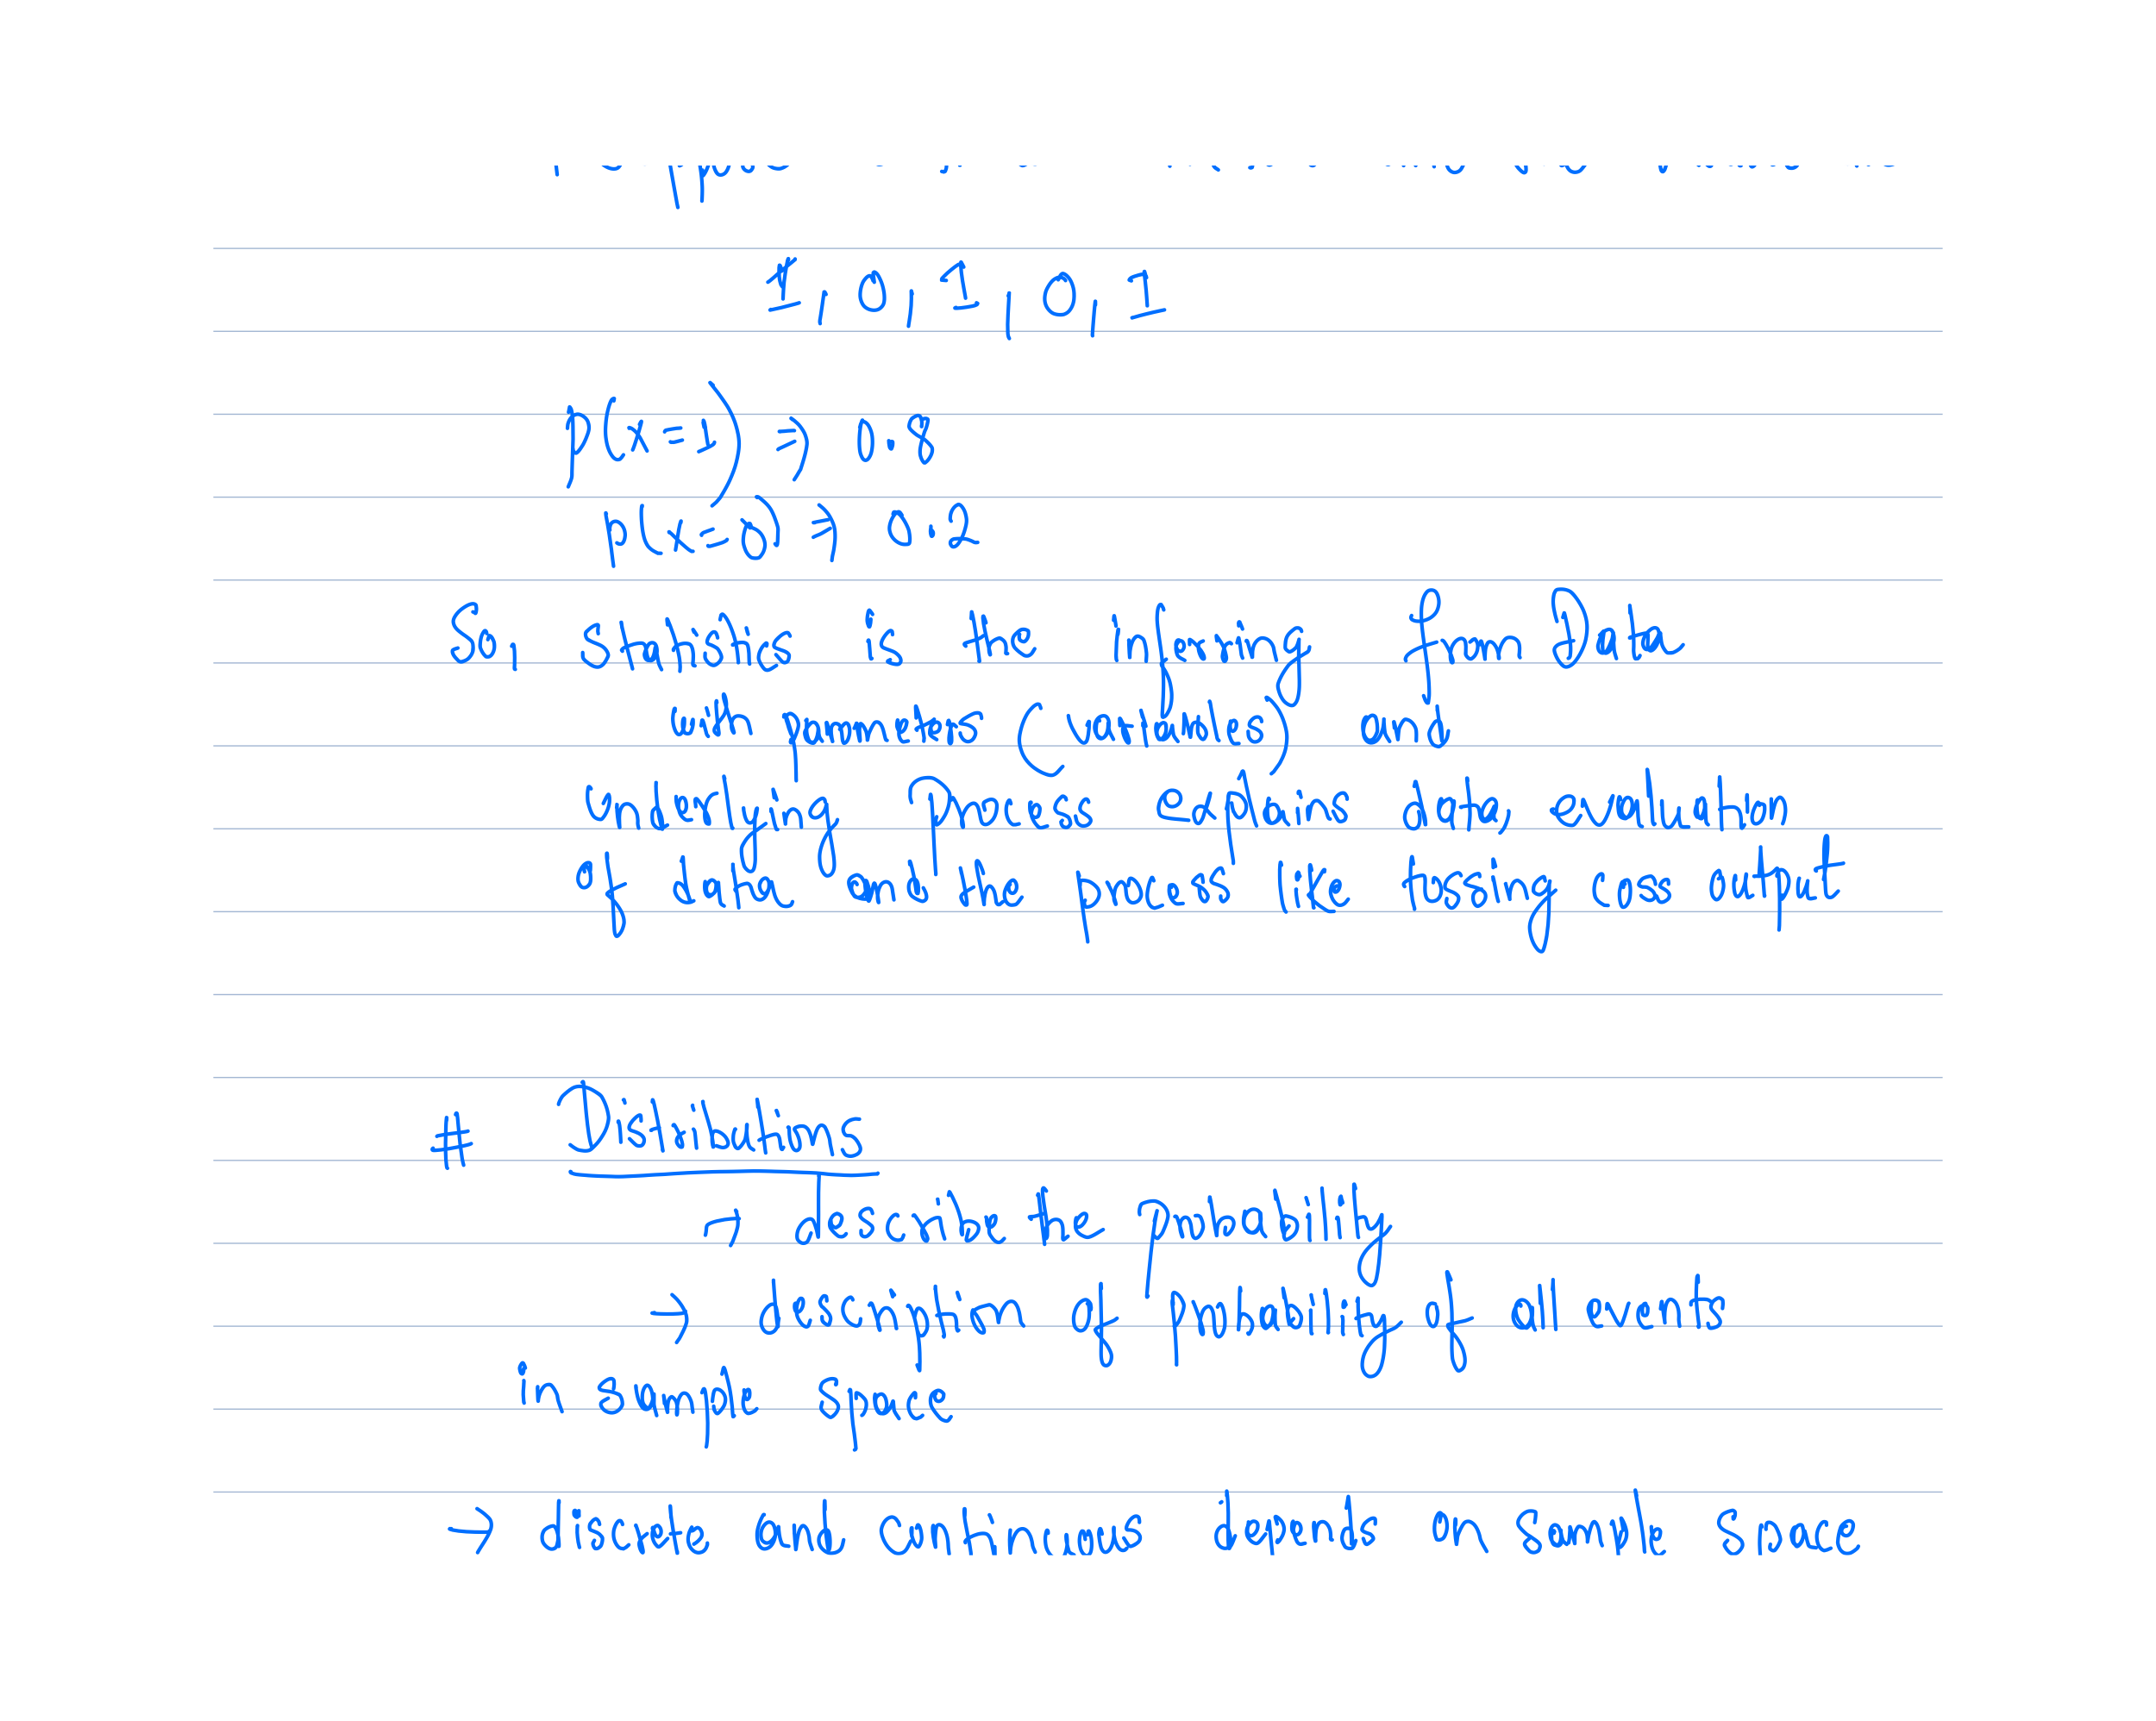 1, 0, 1, 0, 1
p(x=1) ⇒ 0.8
p(x=0) ⇒ 0.2
So, statistics is the infering from Data
with parameters (variables) and
underlying Process explains data, evaluation
of data and the process like tossing as output
# Distributions
→ describe the probability
→ description of probability of all events
in sample space
→ discrete and continuous depends on sample space